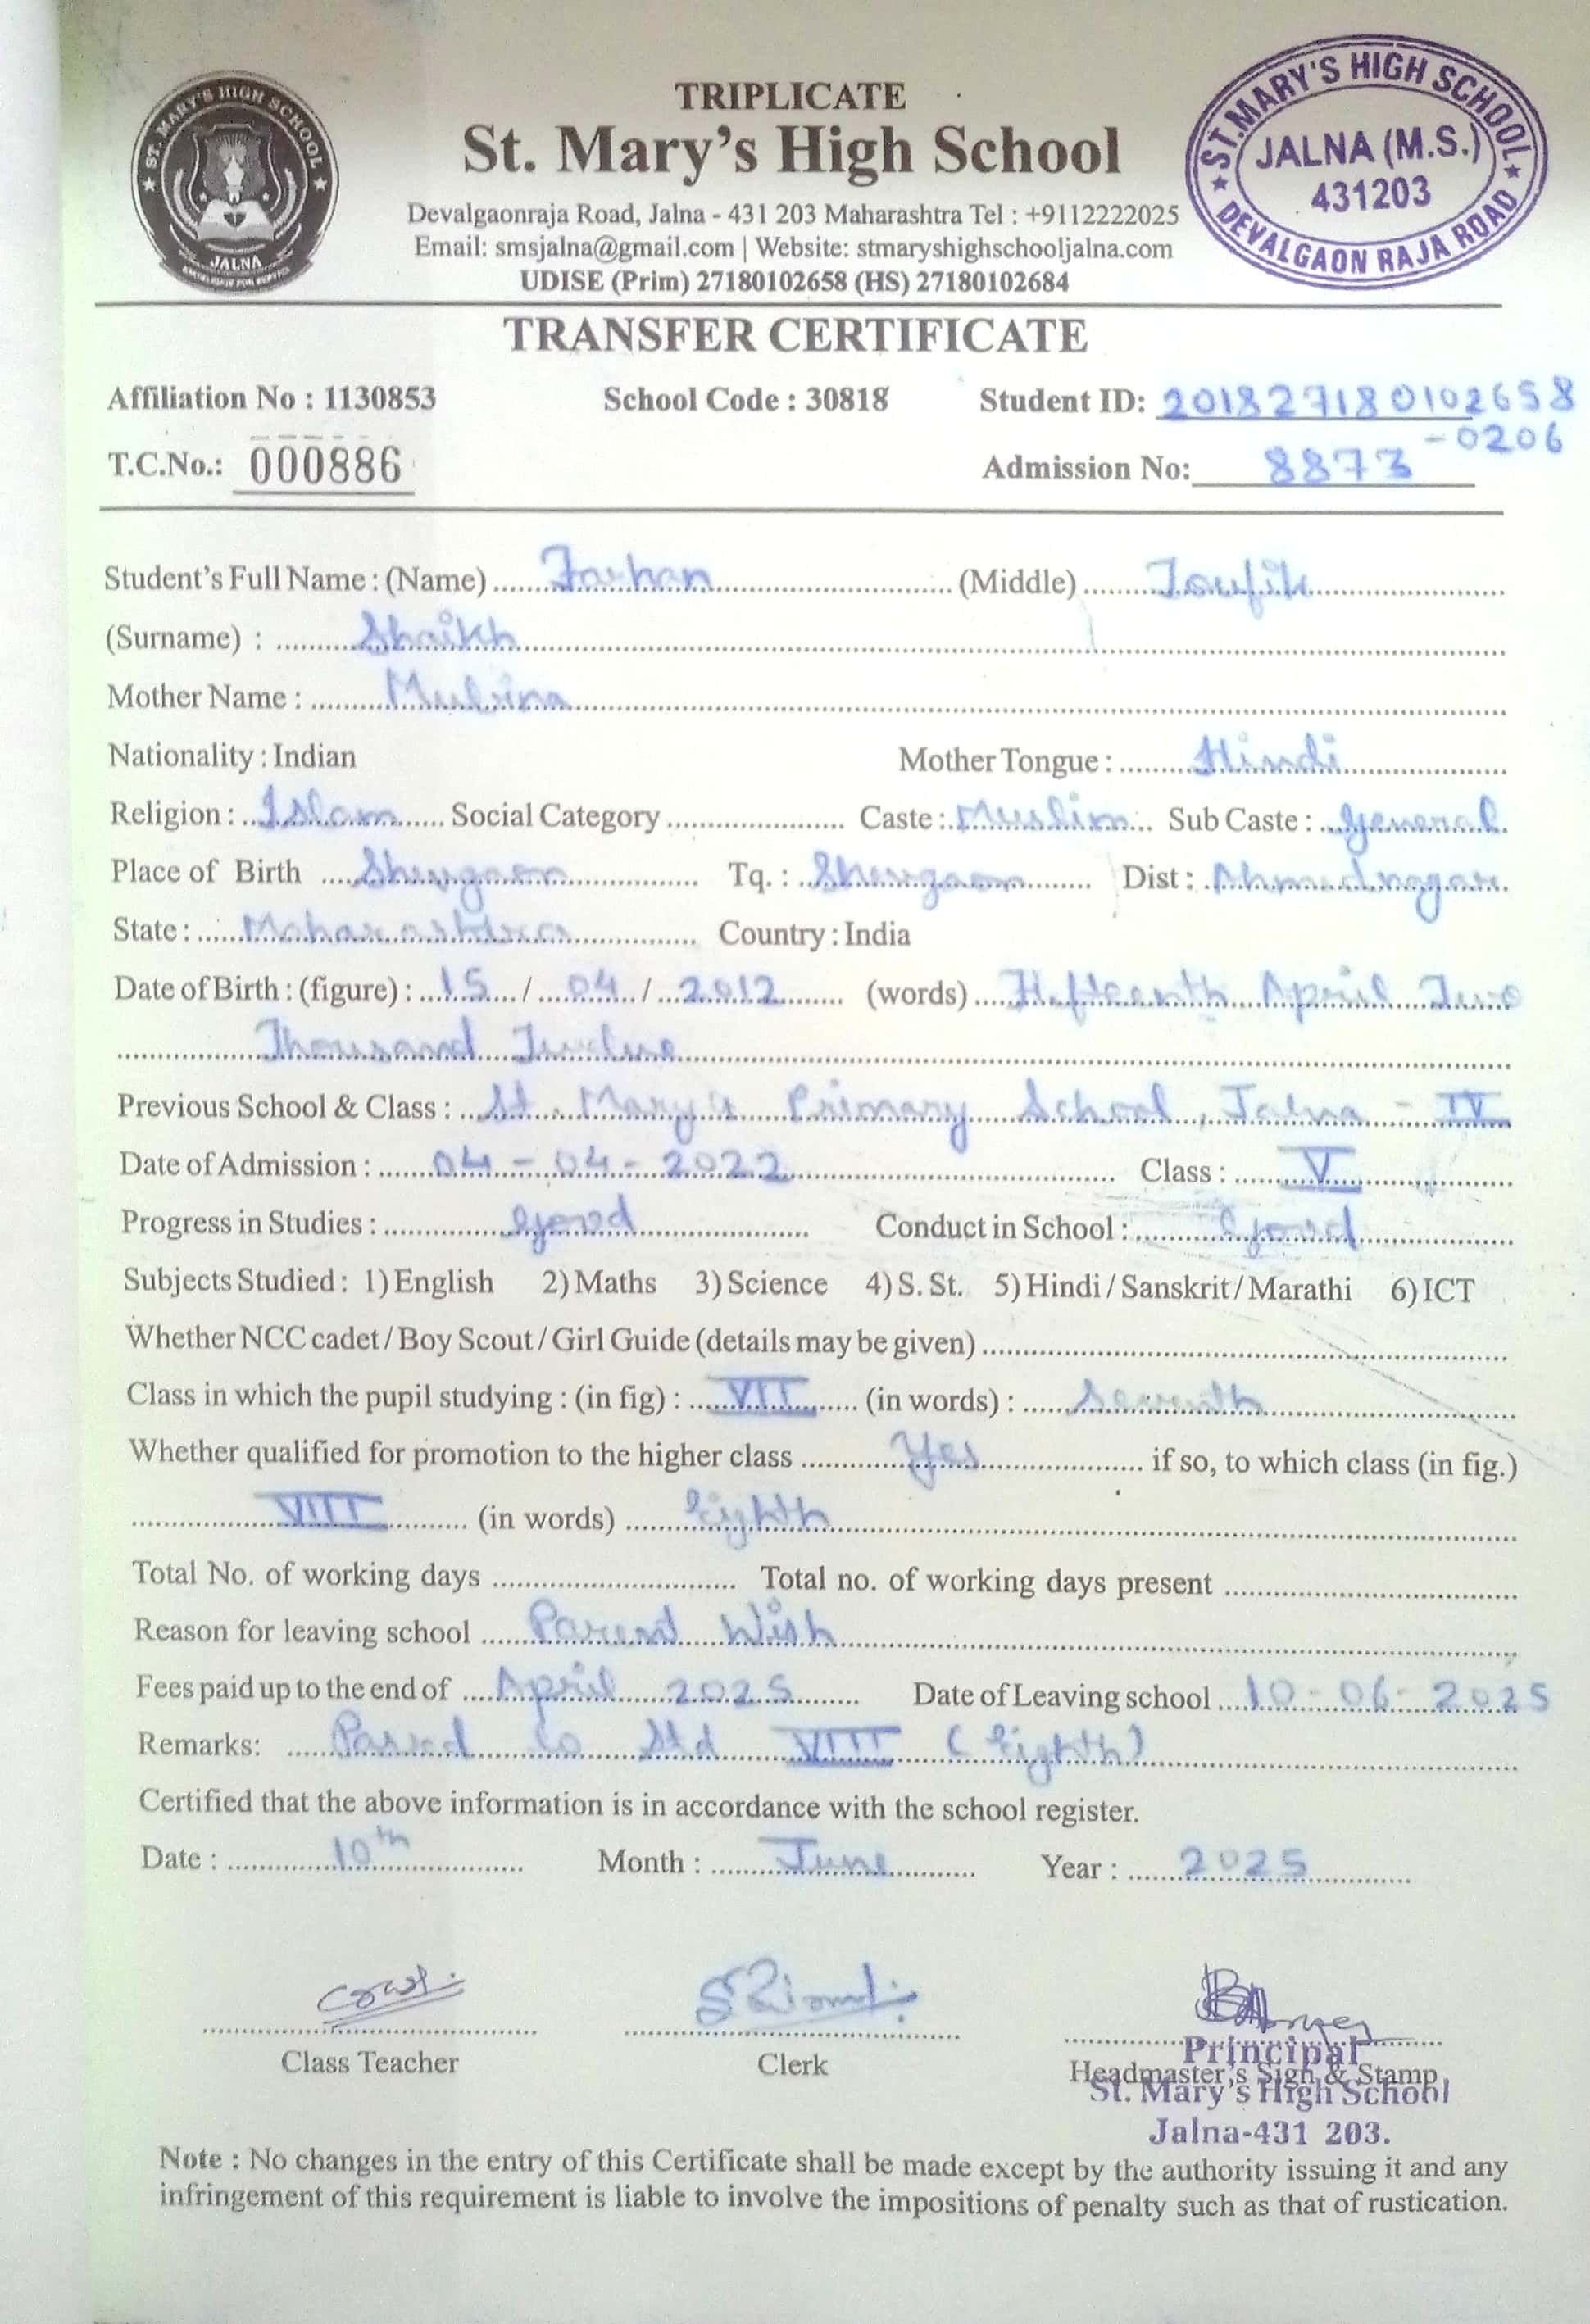 TRIPLICATE
St. Mary's High School
Devalgaonraja Road, Jalna - 431 203 Maharashtra Tel : +9112222025
Email: smsjalna@gmail.com | Website: stmaryshighschooljalna.com
UDISE (Prim) 27180102658 (HS) 27180102684
ST. MARY'S HIGH SCHOOL
JALNA
ST.MARY'S HIGH SCHOOL
JALNA (M.S.)
431203
DEVALGAON RAJA ROAD
TRANSFER CERTIFICATE
Affiliation No : 1130853 School Code : 30818 Student ID: 201827180102658
-0206
T.C.No.: 000886 Admission No: 8873
Student's Full Name : (Name) Farhan (Middle) Toufik
(Surname) : Shaikh
Mother Name :
Nationality : Indian Mother Tongue : Hindi
Religion : Islam Social Category Caste : Muslim Sub Caste : General
Place of Birth Shevgaon Tq. : Shevgaon Dist : Ahmednagar
State : Maharashtra Country : India
Date of Birth : (figure) : 15 / 04 / 2012 (words) Fifteenth April Two
Thousand Twelve
Previous School & Class : St. Mary's Primary School, Jalna - IV
Date of Admission : 04 - 04 - 2022 Class : V
Progress in Studies : Good Conduct in School : Good
Subjects Studied : 1) English 2) Maths 3) Science 4) S. St. 5) Hindi / Sanskrit / Marathi 6) ICT
Whether NCC cadet / Boy Scout / Girl Guide (details may be given)
Class in which the pupil studying : (in fig) : VII (in words) : Seventh
Whether qualified for promotion to the higher class Yes if so, to which class (in fig.)
VIII (in words) Eighth
Total No. of working days Total no. of working days present
Reason for leaving school Parent Wish
Fees paid up to the end of April 2025 Date of Leaving school 10-06-2025
Remarks: Passed to Std VIII (Eighth)
Certified that the above information is in accordance with the school register.
Date : 10th Month : June Year : 2025
Class Teacher Clerk Headmaster's Sign & Stamp
Principal
St. Mary's High School
Jalna-431 203.
Note : No changes in the entry of this Certificate shall be made except by the authority issuing it and any
infringement of this requirement is liable to involve the impositions of penalty such as that of rustication.